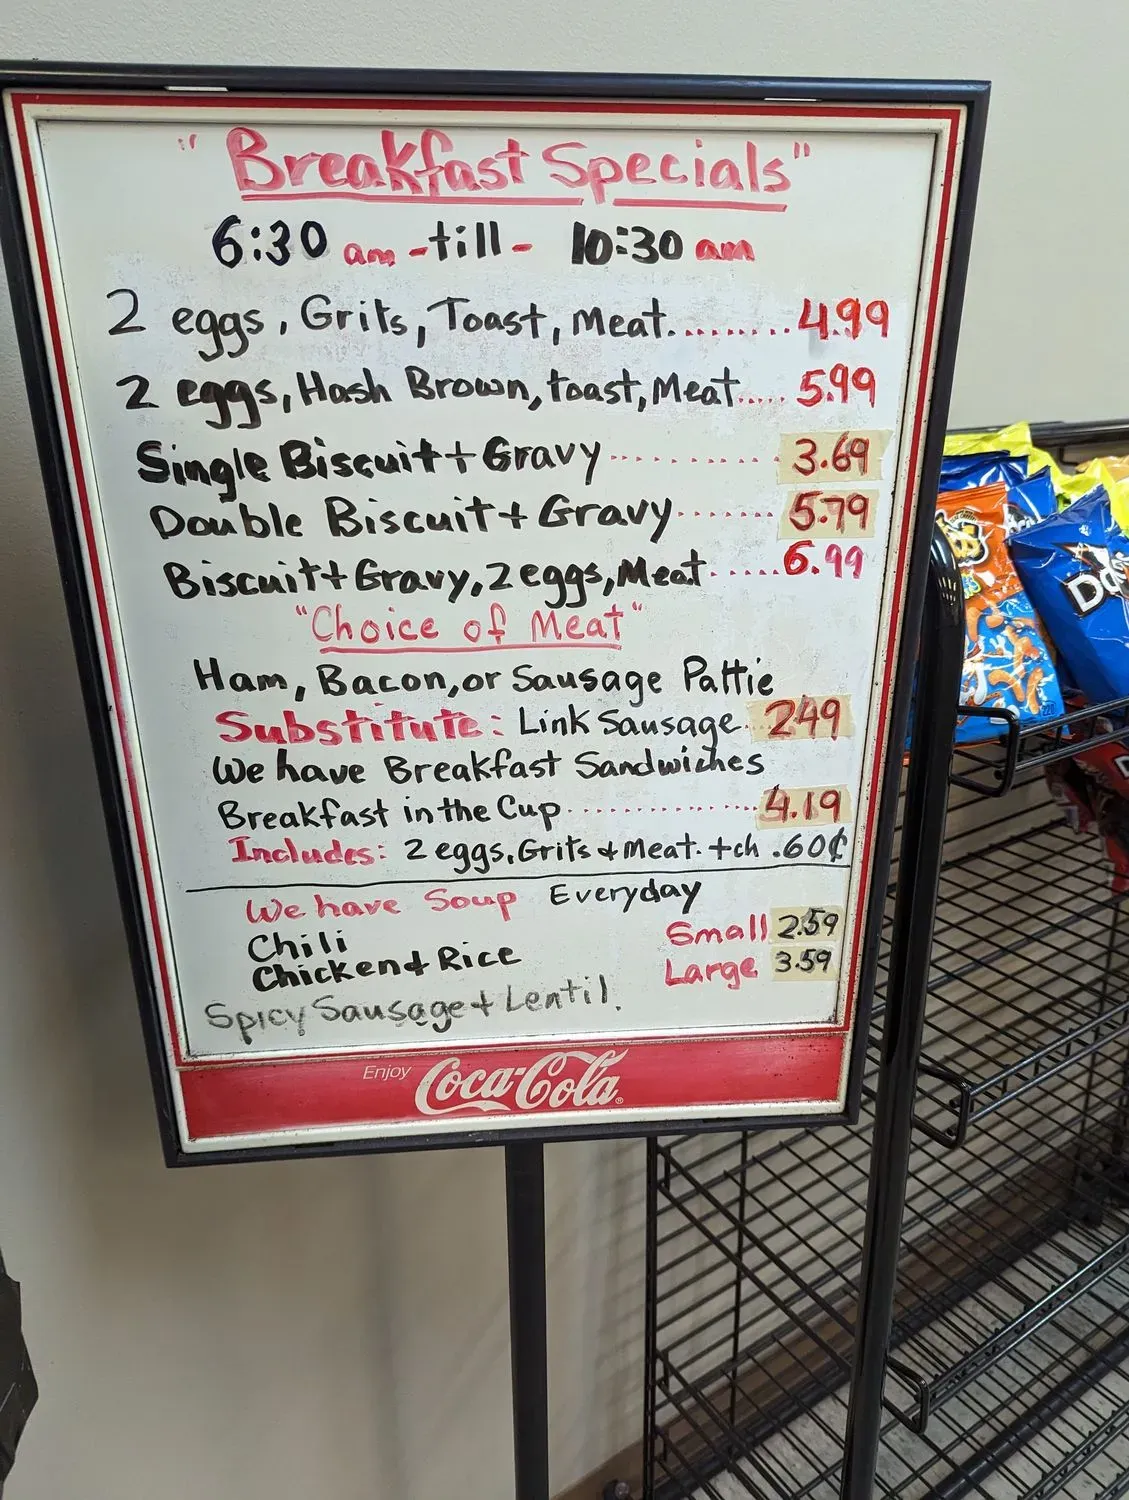 "Breakfast Specials"
6:30 am - till - 10:30 am
2 eggs, Grits, Toast, Meat........ 4.99
2 eggs, Hash Brown, toast, Meat..... 5.99
Single Biscuit + Gravy .......... 3.69
Double Biscuit + Gravy ....... 5.79
Biscuit + Gravy, 2 eggs, Meat ...... 6.99
"Choice of Meat"
Ham, Bacon, or Sausage Pattie
Substitute: Link Sausage. 2.49
We have Breakfast Sandwiches
Breakfast in the Cup .............. 4.19
Includes: 2 eggs, Grits & Meat. + ch .60¢
We have Soup Everyday
Chili
Small 2.59
Chicken & Rice
Large 3.59
Spicy Sausage & Lentil.
Enjoy Coca-Cola®